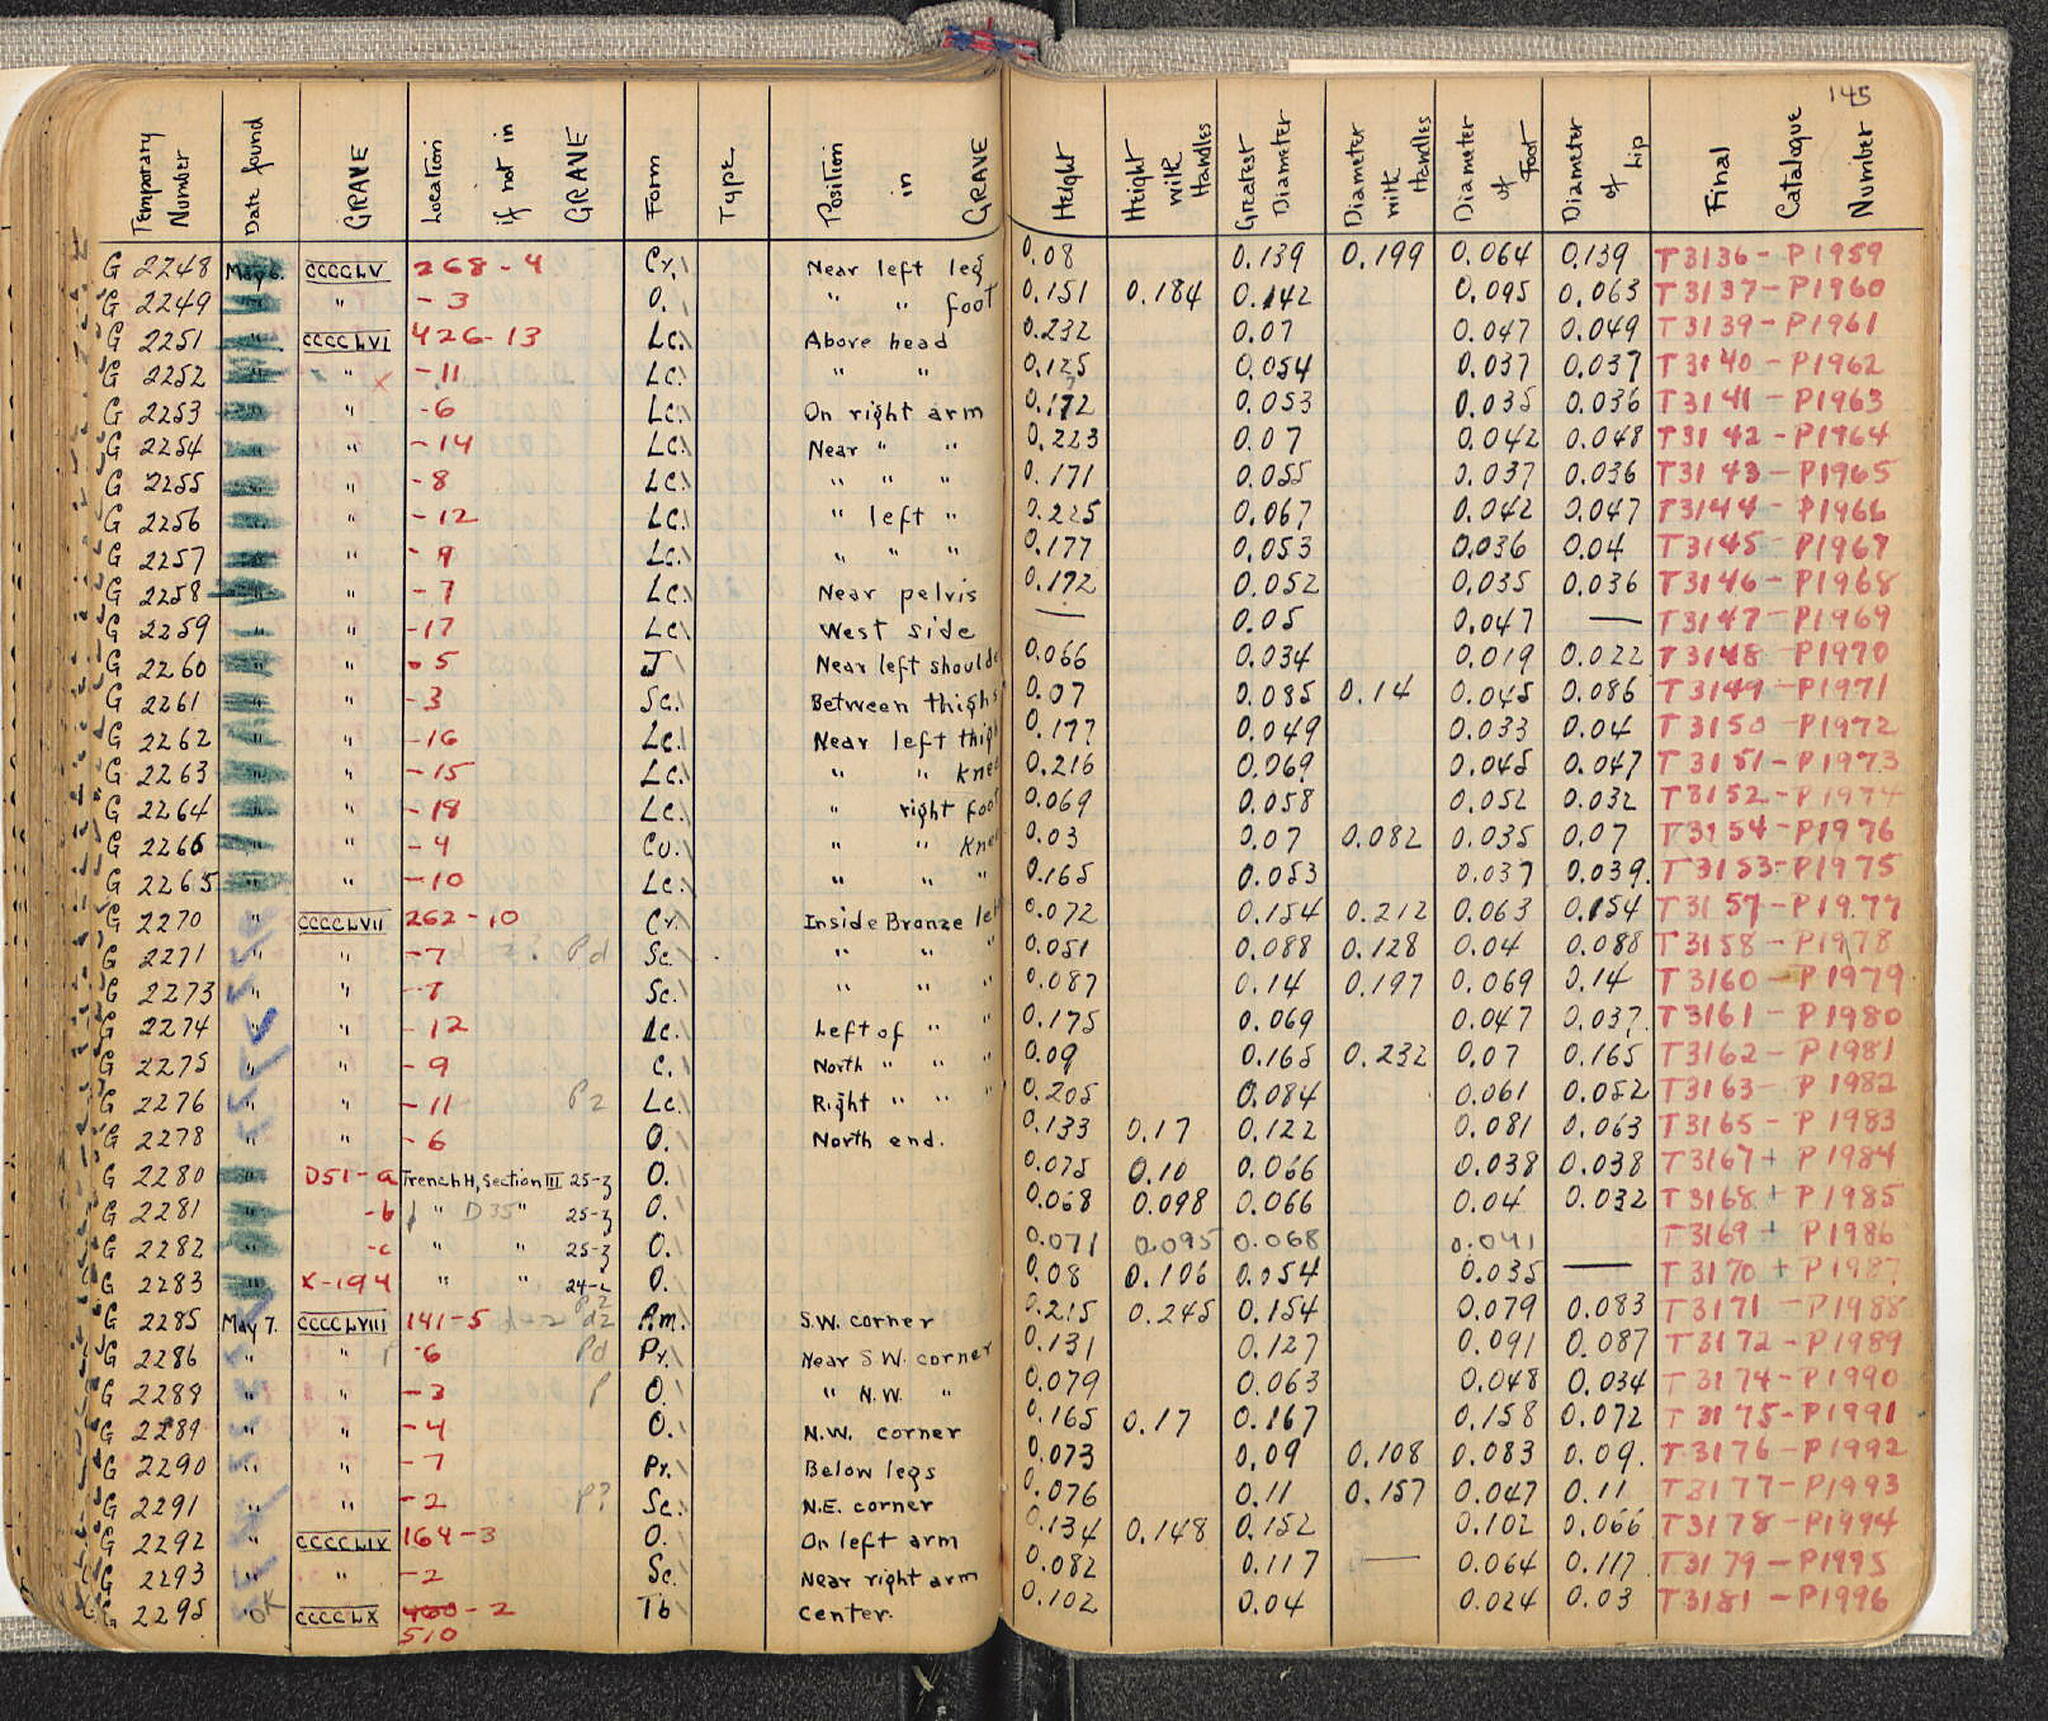 145
Temporary Number | Date found | GRAVE | Location if not in GRAVE | Form | TYPE | Position in GRAVE | Height | Height with Handles | Greatest Diameter | Diameter with Handles | Diameter of Foot | Diameter of Lip | Final Catalogue Number
G 2248 May 6. CCCCLV 268-4 Cr. Near left leg 0.08 0.139 0.199 0.064 0.139 T3136-P1959
G 2249 " " -3 O. " " foot 0.151 0.184 0.142 0.095 0.063 T3137-P1960
G 2251 " CCCCLVI 426-13 Lc. Above head 0.232 0.07 0.047 0.049 T3139-P1961
G 2252 " " x -11 Lc. " " 0.125 0.054 0.037 0.037 T3140-P1962
G 2253 " " -6 Lc. On right arm 0.172 0.053 0.035 0.036 T3141-P1963
G 2254 " " -14 Lc. Near " " 0.223 0.07 0.042 0.048 T3142-P1964
G 2255 " " -8 Lc. " " " 0.171 0.055 0.037 0.036 T3143-P1965
G 2256 " " -12 Lc. " left " 0.225 0.067 0.042 0.047 T3144-P1966
G 2257 " " -9 Lc. " " " 0.177 0.053 0.036 0.04 T3145-P1967
G 2258 " " -7 Lc. Near pelvis 0.172 0.052 0.035 0.036 T3146-P1968
G 2259 " " -17 Lc. West side — 0.05 0.047 — T3147-P1969
G 2260 " " -5 J Near left shoulde 0.066 0.034 0.019 0.022 T3148-P1970
G 2261 " " -3 Sc. Between thighs 0.07 0.085 0.14 0.045 0.086 T3149-P1971
G 2262 " " -16 Lc. Near left thigh 0.177 0.049 0.033 0.04 T3150-P1972
G 2263 " " -15 Lc. " " knee 0.216 0.069 0.045 0.047 T3151-P1973
G 2264 " " -18 Lc. " right foot 0.069 0.058 0.052 0.032 T3152-P1974
G 2266 " " -4 Cu. " " knee 0.03 0.07 0.082 0.035 0.07 T3154-P1976
G 2265 " " -10 Lc. " " " 0.165 0.053 0.037 0.039. T3153-P1975
G 2270 " CCCCLVII 262-10 Cr. Inside Bronze leb 0.072 0.154 0.212 0.063 0.154 T3157-P1977
G 2271 " " -7 Pd Sc. " " " 0.051 0.088 0.128 0.04 0.088 T3158-P1978
G 2273 " " Sc. " " " 0.087 0.14 0.197 0.069 0.14 T3160-P1979
G 2274 " " -12 Lc. Left of " " 0.175 0.069 0.047 0.037. T3161-P1980
G 2275 " " -9 C. North " " " 0.09 0.165 0.232 0.07 0.165 T3162-P1981
G 2276 " " -11 P2 Lc. Right " " " 0.205 0.084 0.061 0.052 T3163-P1982
G 2278 " " -6 O. North end. 0.133 0.17 0.122 0.081 0.063 T3165-P1983
G 2280 " D51-a Trench H, Section III 25-z O. 0.075 0.10 0.066 0.038 0.038 T3167+P1984
G 2281 " -b " D35 " 25-z O. 0.068 0.098 0.066 0.04 0.032 T3168+P1985
G 2282 " -c " " 25-z O. 0.071 0.095 0.068 0.041 T3169+P1986
G 2283 " X-194 " " 24-z O. 0.08 0.106 0.054 0.035 — T3170+P1987
G 2285 May 7. CCCCLVIII 141-5 Am. S.W. corner 0.215 0.245 0.154 0.079 0.083 T3171-P1988
G 2286 " " -6 Pd Py. Near S.W. corner 0.131 0.127 0.091 0.087 T3172-P1989
G 2288 " " -3 P O. " N.W. " 0.079 0.063 0.048 0.034 T3174-P1990
G 2289 " " -4 O. N.W. corner 0.165 0.17 0.167 0.158 0.072 T3175-P1991
G 2290 " " -7 Py. Below legs 0.073 0.09 0.108 0.083 0.09. T3176-P1992
G 2291 " " -2 P? Sc. N.E. corner 0.076 0.11 0.157 0.047 0.11 T3177-P1993
G 2292 " CCCCLIX 164-3 O. On left arm 0.134 0.148 0.152 0.102 0.066 T3178-P1994
G 2293 " " -2 Sc. Near right arm 0.082 0.117 — 0.064 0.117 T3179-P1995
G 2295 " OK CCCCLX 460-2 Tb Center. 0.102 0.04 0.024 0.03 T3181-P1996
510